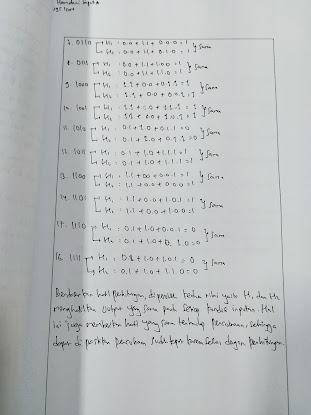 7. 0110 H₁ : 0.0 + 1.1 + 0.0.0 = 1 } Sama
H₂ : 0.0 + 1.1 + 0.1.0 = 1
8. 0111 H₁ : 0.0 + 1.1 + 1.0.0 = 1 } Sama
H₂ : 0.0 + 1.1 + 1.1.0 = 1
9. 1000 H₁ : 1.1 + 0.0 + 0.1.1 = 1 } Sama
H₂ : 1.1 + 0.0 + 0.0.1 = 1
10. 1001 H₁ : 1.1 + 0.0 + 1.1.1 = 1 } Sama
H₂ : 1.1 + 0.0 + 1.0.1 = 1
11. 1010 H₁ : 0.1 + 1.0 + 0.1.1 = 0 } Sama
H₂ : 0.1 + 1.0 + 0.1.1 = 0
12. 1011 H₁ : 0.1 + 1.0 + 1.1.1 = 1 } Sama
H₂ : 0.1 + 1.0 + 1.1.1 = 1
13. 1100 H₁ : 1.1 + 0.0 + 0.0.1 = 1 } Sama
H₂ : 1.1 + 0.0 + 0.0.0 = 1
14. 1101 H₁ : 1.1 + 0.0 + 1.0.1 = 1 } Sama
H₂ : 1.1 + 0.0 + 1.0.0 = 1
15. 1110 H₁ : 0.1 + 1.0 + 0.0.1 = 0 } Sama
H₂ : 0.1 + 1.0 + 0.1.0 = 0
16. 1111 H₁ : 0.1 + 1.0 + 1.0.1 = 0 } Sama
H₂ : 0.1 + 1.0 + 1.1.0 = 0
Berdasarkan hasil perhitungan, diperoleh kedua nilai yaitu H₁ dan H₂
menghasilkan output yang sama pada semua kondisi inputan. Hal
ini juga memberikan hasil yang sama terhadap percobaan, sehingga
dapat dipastikan percobaan sudah tepat karena sesuai dengan perhitungan.